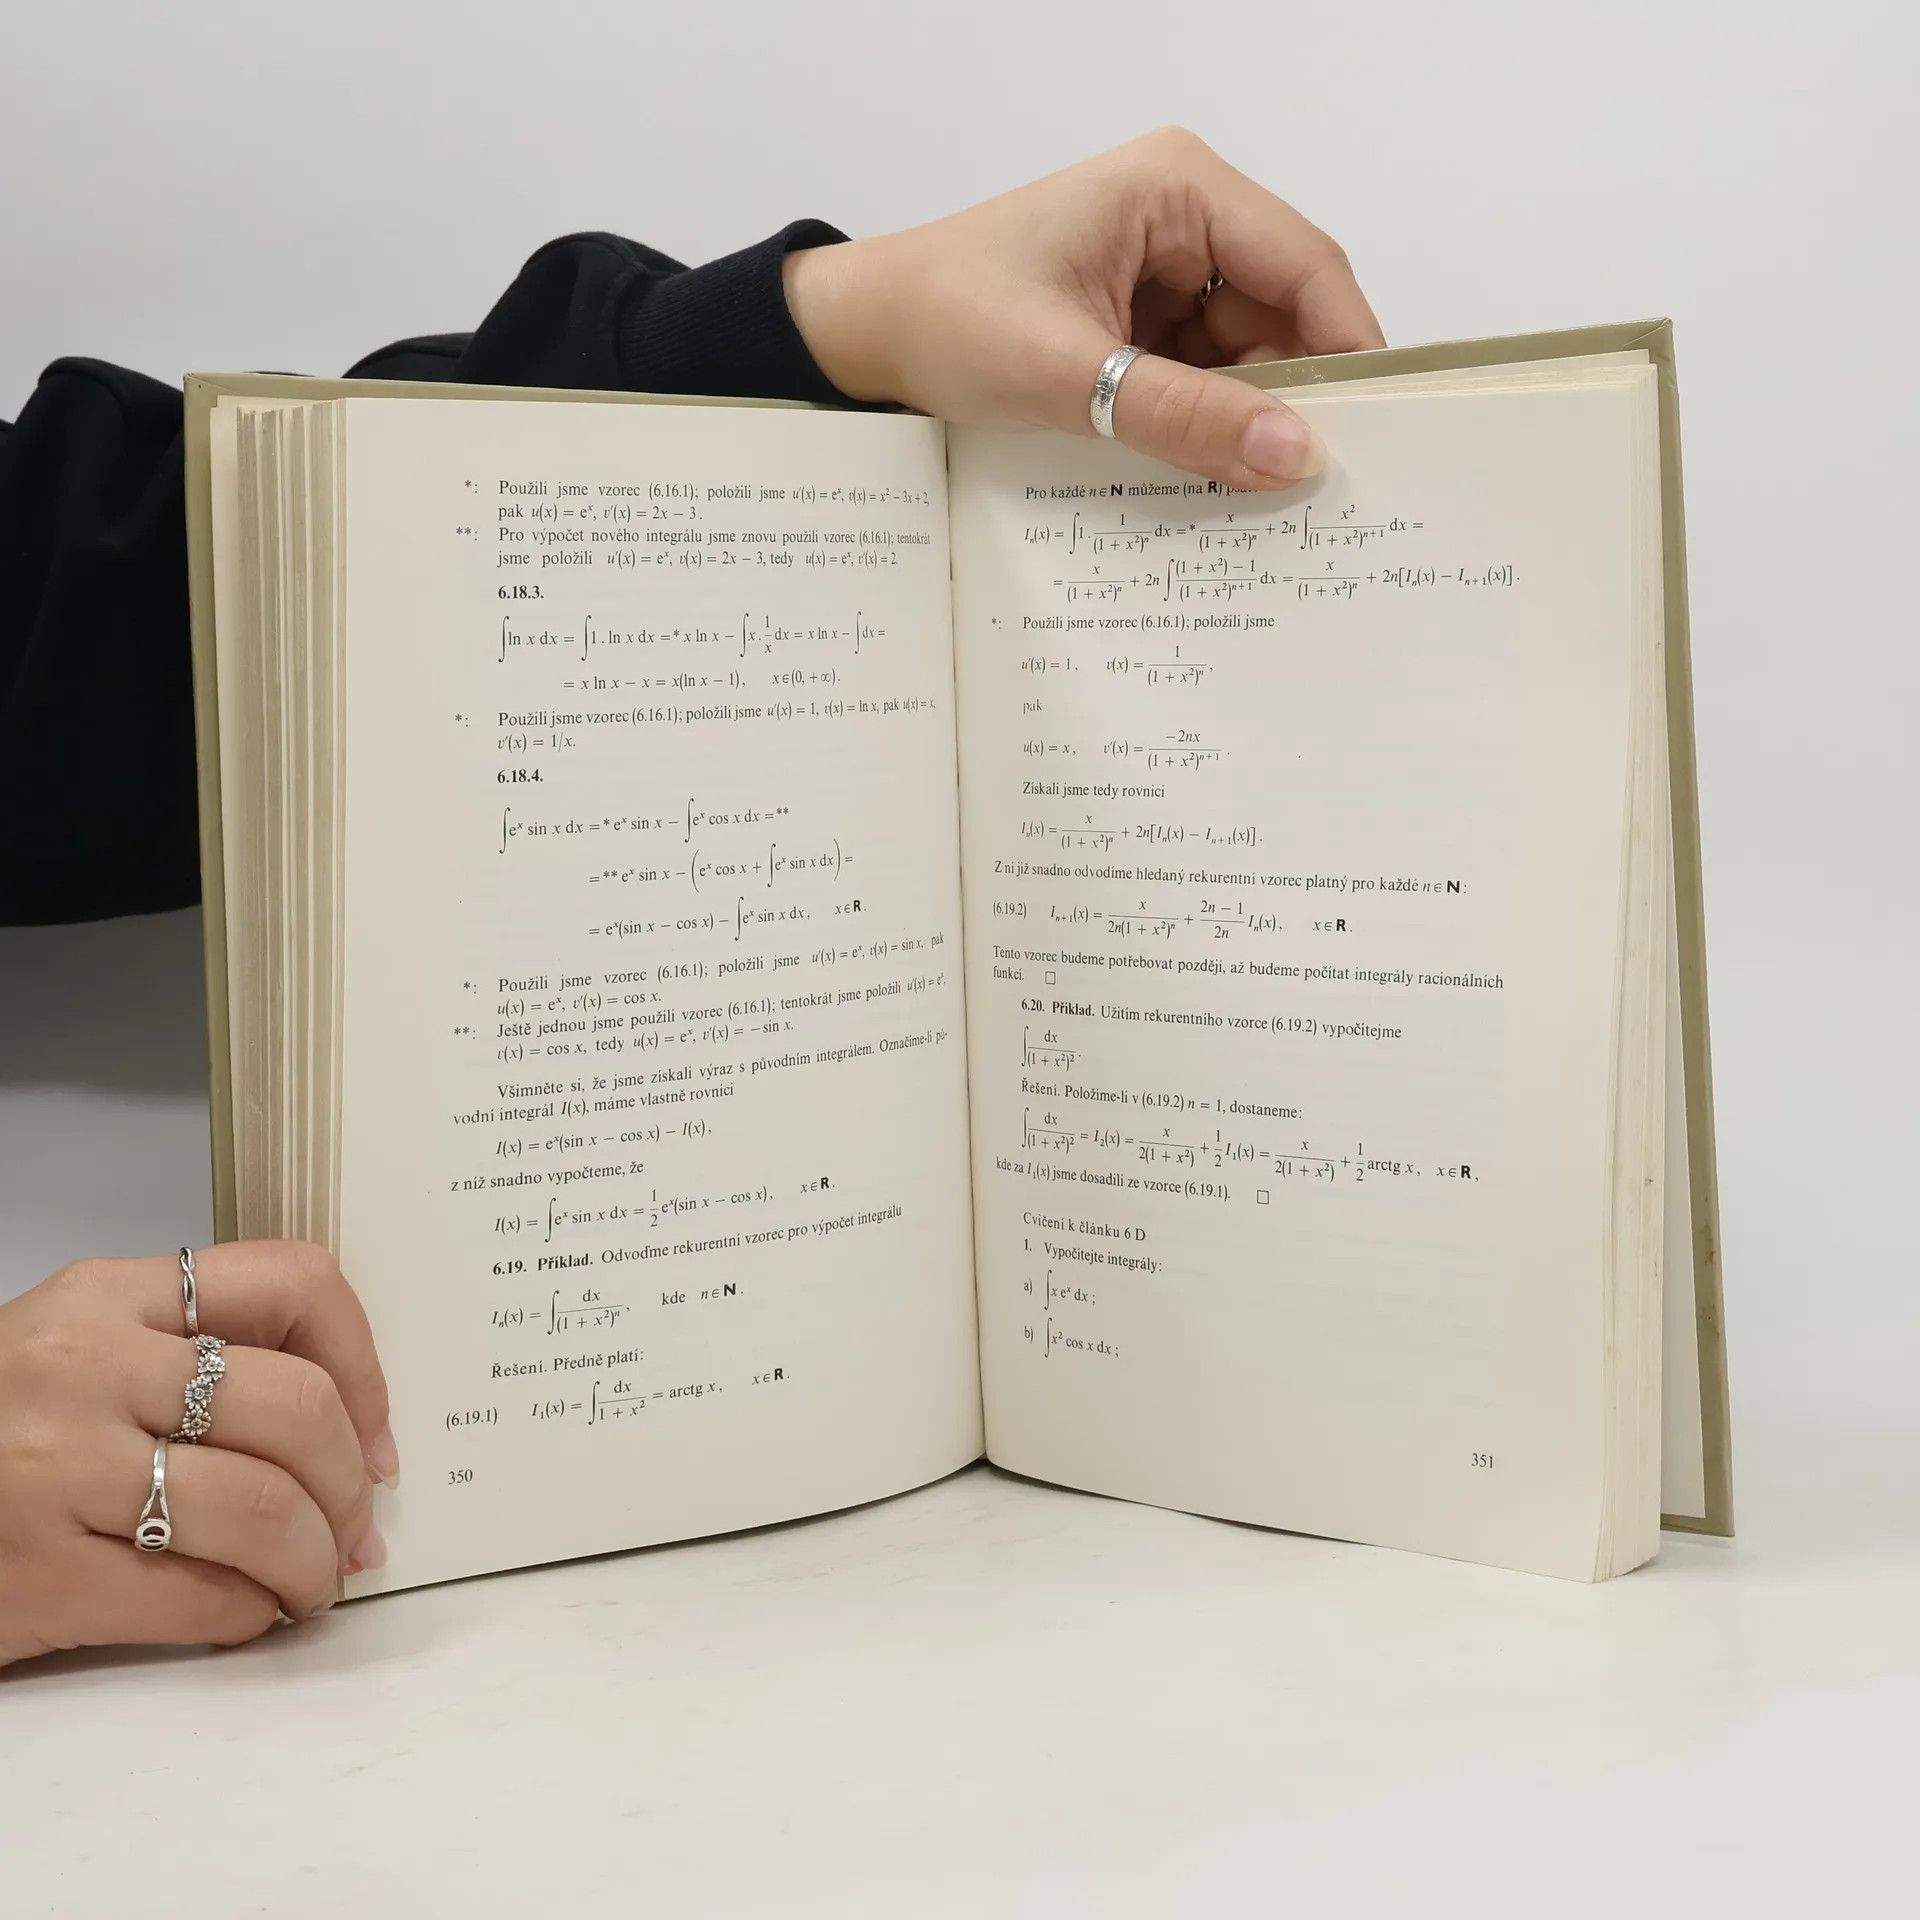 *: Použili jsme vzorec (6.16.1); položili jsme u′(x) = eˣ, v(x) = x² − 3x + 2,
pak u(x) = eˣ, v′(x) = 2x − 3.
**: Pro výpočet nového integrálu jsme znovu použili vzorec (6.16.1); tentokrát
jsme položili u′(x) = eˣ, v(x) = 2x − 3, tedy u(x) = eˣ, v′(x) = 2.
6.18.3.
∫ln x dx = ∫1 . ln x dx =* x ln x − ∫x . 1/x dx = x ln x − ∫dx =
= x ln x − x = x(ln x − 1), x ∈ (0, +∞).
*: Použili jsme vzorec (6.16.1); položili jsme u′(x) = 1, v(x) = ln x, pak u(x) = x,
v′(x) = 1/x.
6.18.4.
∫eˣ sin x dx =* eˣ sin x − ∫eˣ cos x dx =**
=** eˣ sin x − (eˣ cos x + ∫eˣ sin x dx) =
= eˣ(sin x − cos x) − ∫eˣ sin x dx, x ∈ R.
*: Použili jsme vzorec (6.16.1); položili jsme u′(x) = eˣ, v(x) = sin x, pak
u(x) = eˣ, v′(x) = cos x.
**: Ještě jednou jsme použili vzorec (6.16.1); tentokrát jsme položili u′(x) = eˣ,
v(x) = cos x, tedy u(x) = eˣ, v′(x) = −sin x.
Všimněte si, že jsme získali výraz s původním integrálem. Označíme-li pů-
vodní integrál I(x), máme vlastně rovnici
I(x) = eˣ(sin x − cos x) − I(x),
z níž snadno vypočteme, že
I(x) = ∫eˣ sin x dx = 1/2 eˣ(sin x − cos x), x ∈ R.
6.19. Příklad. Odvoďme rekurentní vzorec pro výpočet integrálu
Iₙ(x) = ∫dx/(1 + x²)ⁿ, kde n ∈ N.
Řešení. Předně platí:
(6.19.1) I₁(x) = ∫dx/(1 + x²) = arctg x, x ∈ R.
350
Pro každé n ∈ N můžeme (na R)
Iₙ(x) = ∫1 . 1/(1 + x²)ⁿ dx =* x/(1 + x²)ⁿ + 2n ∫x²/(1 + x²)ⁿ⁺¹ dx =
= x/(1 + x²)ⁿ + 2n ∫((1 + x²) − 1)/(1 + x²)ⁿ⁺¹ dx = x/(1 + x²)ⁿ + 2n[Iₙ(x) − Iₙ₊₁(x)].
*: Použili jsme vzorec (6.16.1); položili jsme
u′(x) = 1, v(x) = 1/(1 + x²)ⁿ,
pak
u(x) = x, v′(x) = −2nx/(1 + x²)ⁿ⁺¹.
Získali jsme tedy rovnici
Iₙ(x) = x/(1 + x²)ⁿ + 2n[Iₙ(x) − Iₙ₊₁(x)].
Z ní již snadno odvodíme hledaný rekurentní vzorec platný pro každé n ∈ N:
(6.19.2) Iₙ₊₁(x) = x/(2n(1 + x²)ⁿ) + (2n − 1)/2n Iₙ(x), x ∈ R.
Tento vzorec budeme potřebovat později, až budeme počítat integrály racionálních
funkcí. □
6.20. Příklad. Užitím rekurentního vzorce (6.19.2) vypočítejme
∫dx/(1 + x²)².
Řešení. Položíme-li v (6.19.2) n = 1, dostaneme:
∫dx/(1 + x²)² = I₂(x) = x/(2(1 + x²)) + 1/2 I₁(x) = x/(2(1 + x²)) + 1/2 arctg x, x ∈ R,
kde za I₁(x) jsme dosadili ze vzorce (6.19.1). □
Cvičení k článku 6 D
1. Vypočítejte integrály:
a) ∫x eˣ dx;
b) ∫x² cos x dx;
351